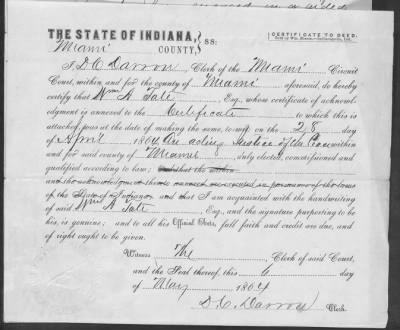 THE STATE OF INDIANA, } ss:
CERTIFICATE TO DEED.
Miami COUNTY,
I D C Darrow Clerk of the Miami Circuit
Court, within and for the county of Miami aforesaid, do hereby
certify that Wm A Tate Esq., whose certificate of acknowl-
edgment is annexed to the Certificate to which this is
attached, was at the date of making the same, to wit on the 28 day
of April 1864 an acting Justice of the Peace within
and for said county of Miami, duly elected, commissioned and
qualified according to law;
of the State of Indiana and that I am acquainted with the handwriting
of said Wm A Tate Esq., and the signature purporting to be
his, is genuine; and to all his Official Acts, full faith and credit are due, and
of right ought to be given.
Witness The Clerk of said Court,
and the Seal thereof, this 6 day
of May 1864
D. C. Darrow Clerk.